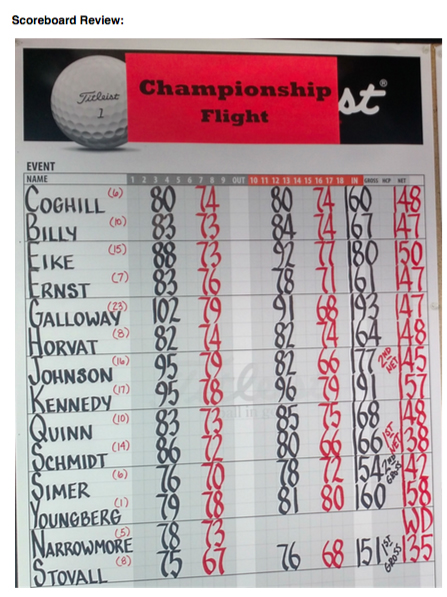 Scoreboard Review:
Titleist
1
Championship
Flight
st®
EVENT
NAME 1 2 3 4 5 6 7 8 9 OUT 10 11 12 13 14 15 16 17 18 IN GROSS HCP NET
COGHILL (6) 80 74 80 74 160 148
BILLY (10) 83 73 84 74 167 147
EIKE (15) 88 73 92 77 180 150
ERNST (7) 83 76 78 71 161 147
GALLOWAY (23) 102 79 91 68 193 147
HORVAT (8) 82 74 82 74 164 148
JOHNSON (16) 95 79 82 66 177 2ND NET 145
KENNEDY (17) 95 78 96 79 191 157
QUINN (10) 83 73 85 75 168 148
SCHMIDT (14) 86 72 80 66 166 1ST NET 138
SIMER (6) 76 70 78 72 154 2ND GROSS 142
YOUNGBERG (1) 79 78 81 80 160 158
NARROWMORE (5) 78 73 WD
STOVALL (8) 75 67 76 68 151 1ST GROSS 135